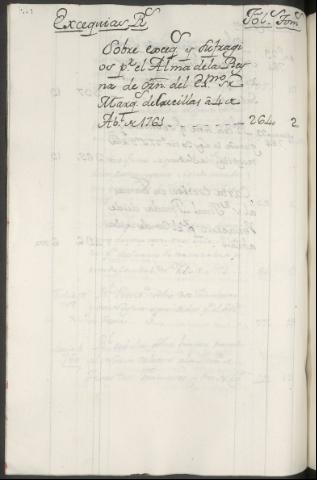 Exequias R.s Fol.s Tom.s
Sobre exeq.s y sufragi
os p.r el Alma de la Rey
na de orn. del Ex.mo S.r
Marq.s de Crecillas a 4 de
Ab.l de 1761 264 2